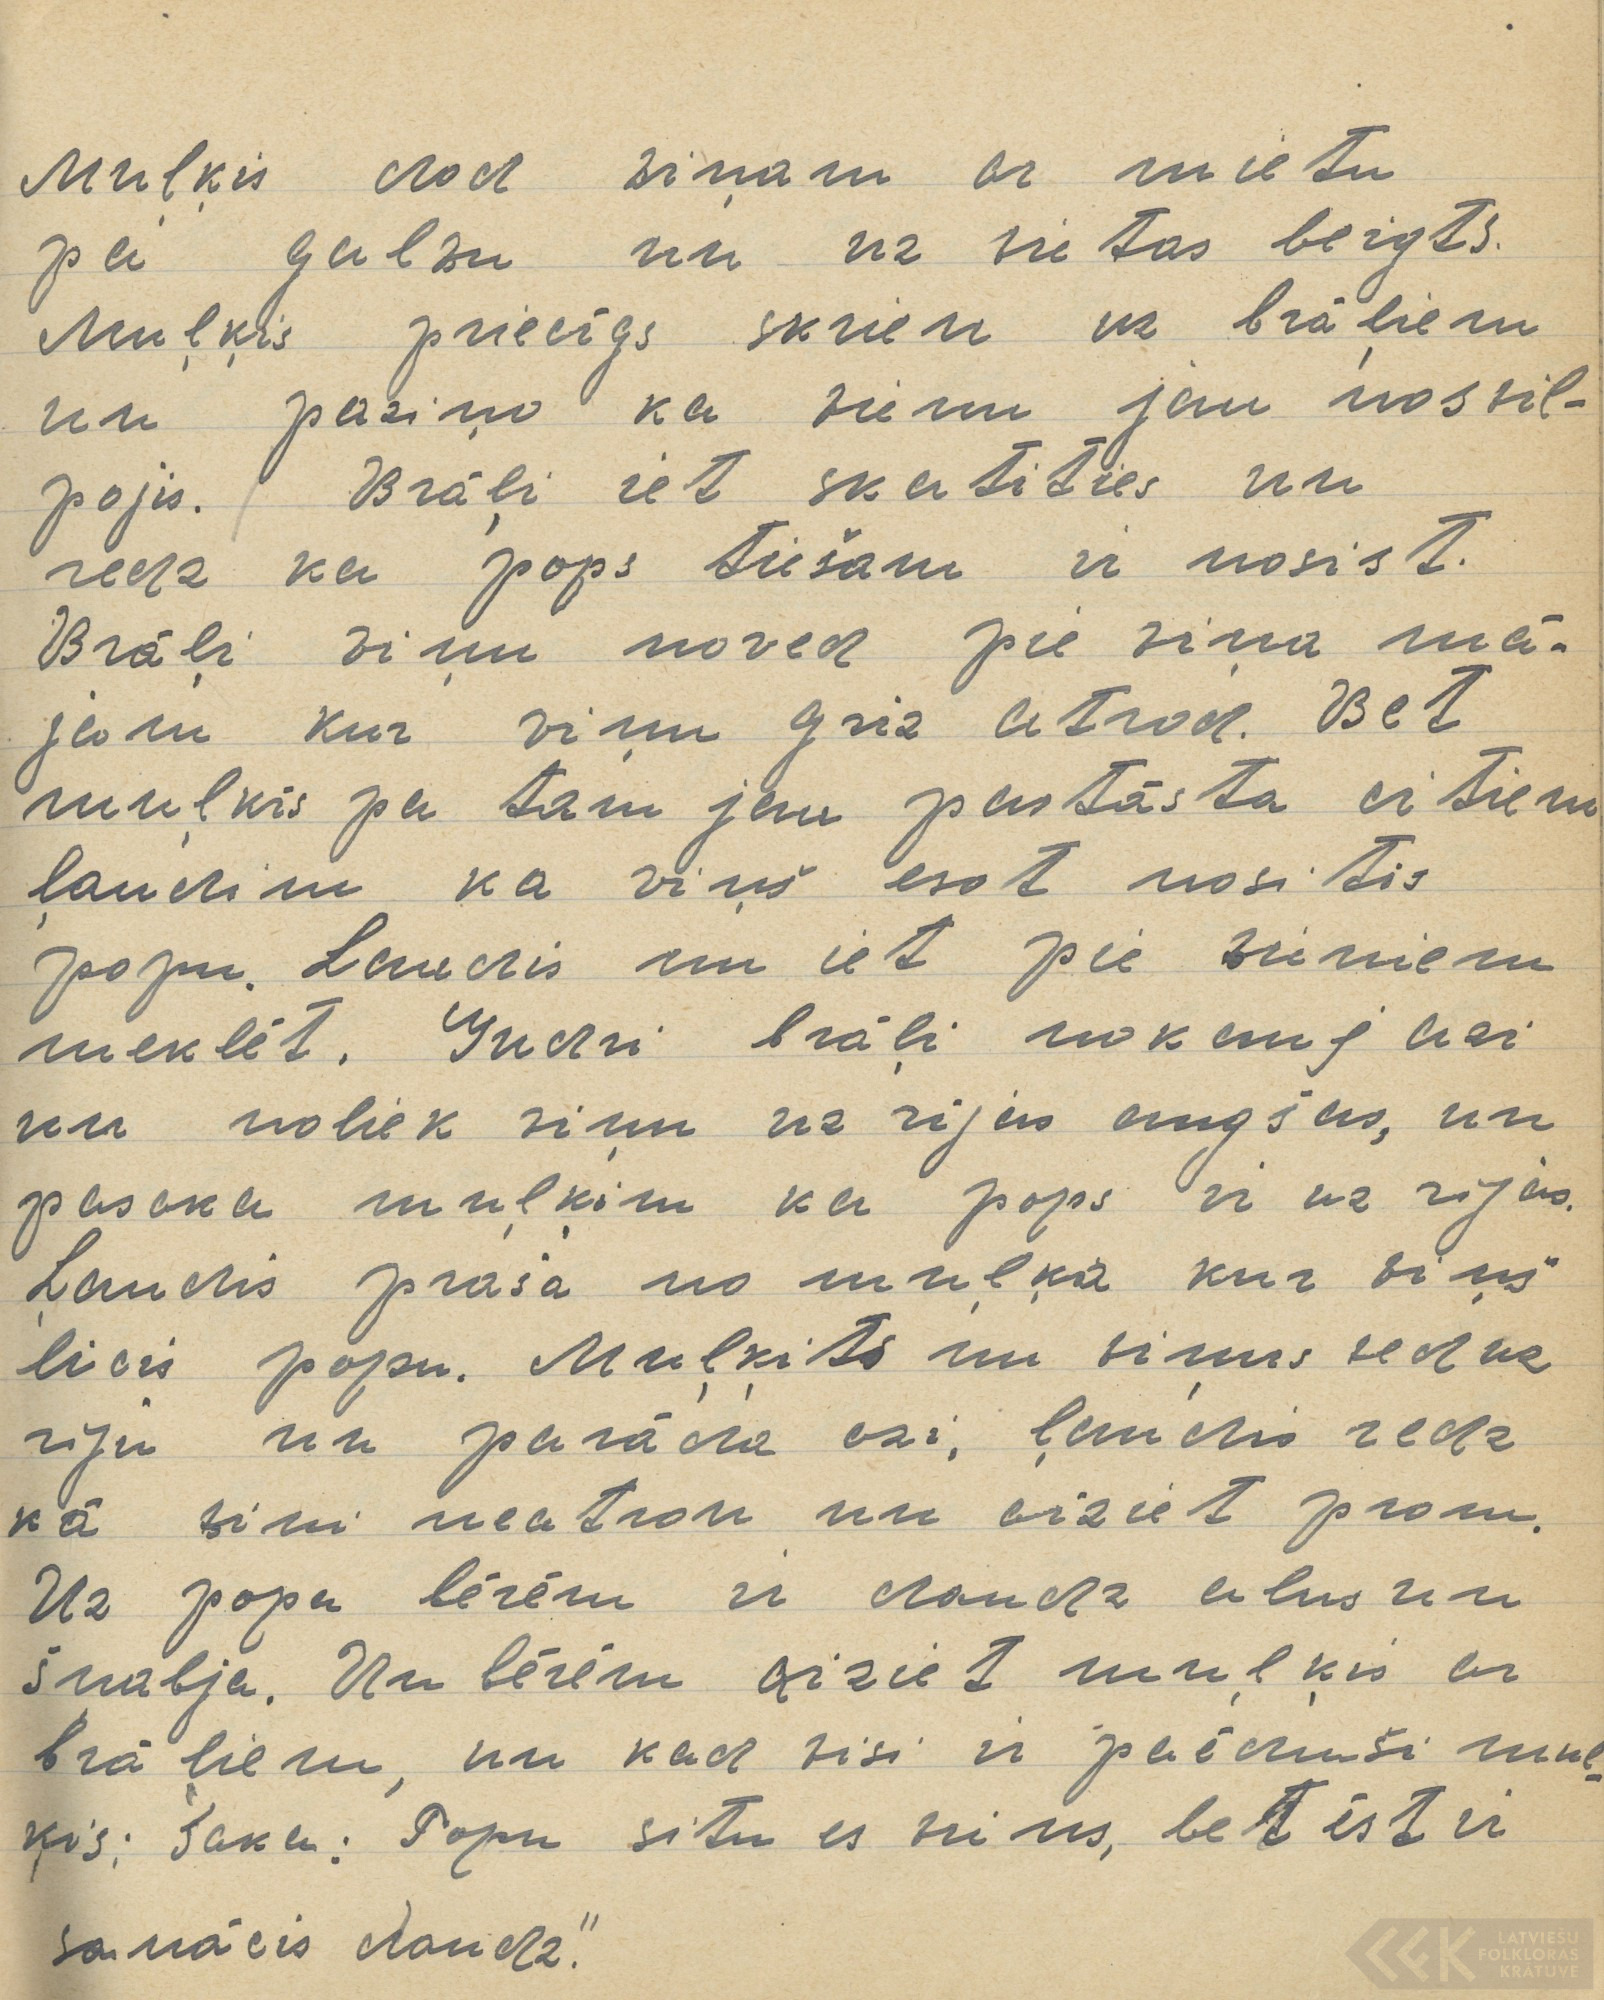 Muļķis dod viņam ar mietu
pa galvu un uz vietas beigts.
Muļķis priecīgs skrien uz brāļiem
un paziņo ka vienu jau nosvil-
pojis. Brāļi iet skatities un
redz ka pops tiešam ir nosist.
Brāļi viņu noved pie viņa mā-
jam kur viņu griz atrod. Bet
muļkis pa tam jau pastāsta citiem
ļaudim ka viņš esot nositis
popu. Laudis nu iet pie viniem
meklēt. Gudri brāļi nokauj azi
un noliek viņu uz rijas augšas, un
pasaka muļķim ka pops ir uz rijas.
Ļaudis prasa no muļķa kur viņš
licis popu. Muļķits nu viņus ved uz
riju un parāda azi, ļaudis redz
kā vini neatron un aiziet prom.
Uz popa bērēm ir daudz alus un
šnabja. Un bērēm aiziet muļķis ar
brāļiem, un kad visi ir paēduši mul-
ķis: Saka: Popu situ es vins, bet ēst ir
sanācis daudz."
LATVIEŠU
FOLKLORAS
KRĀTUVE